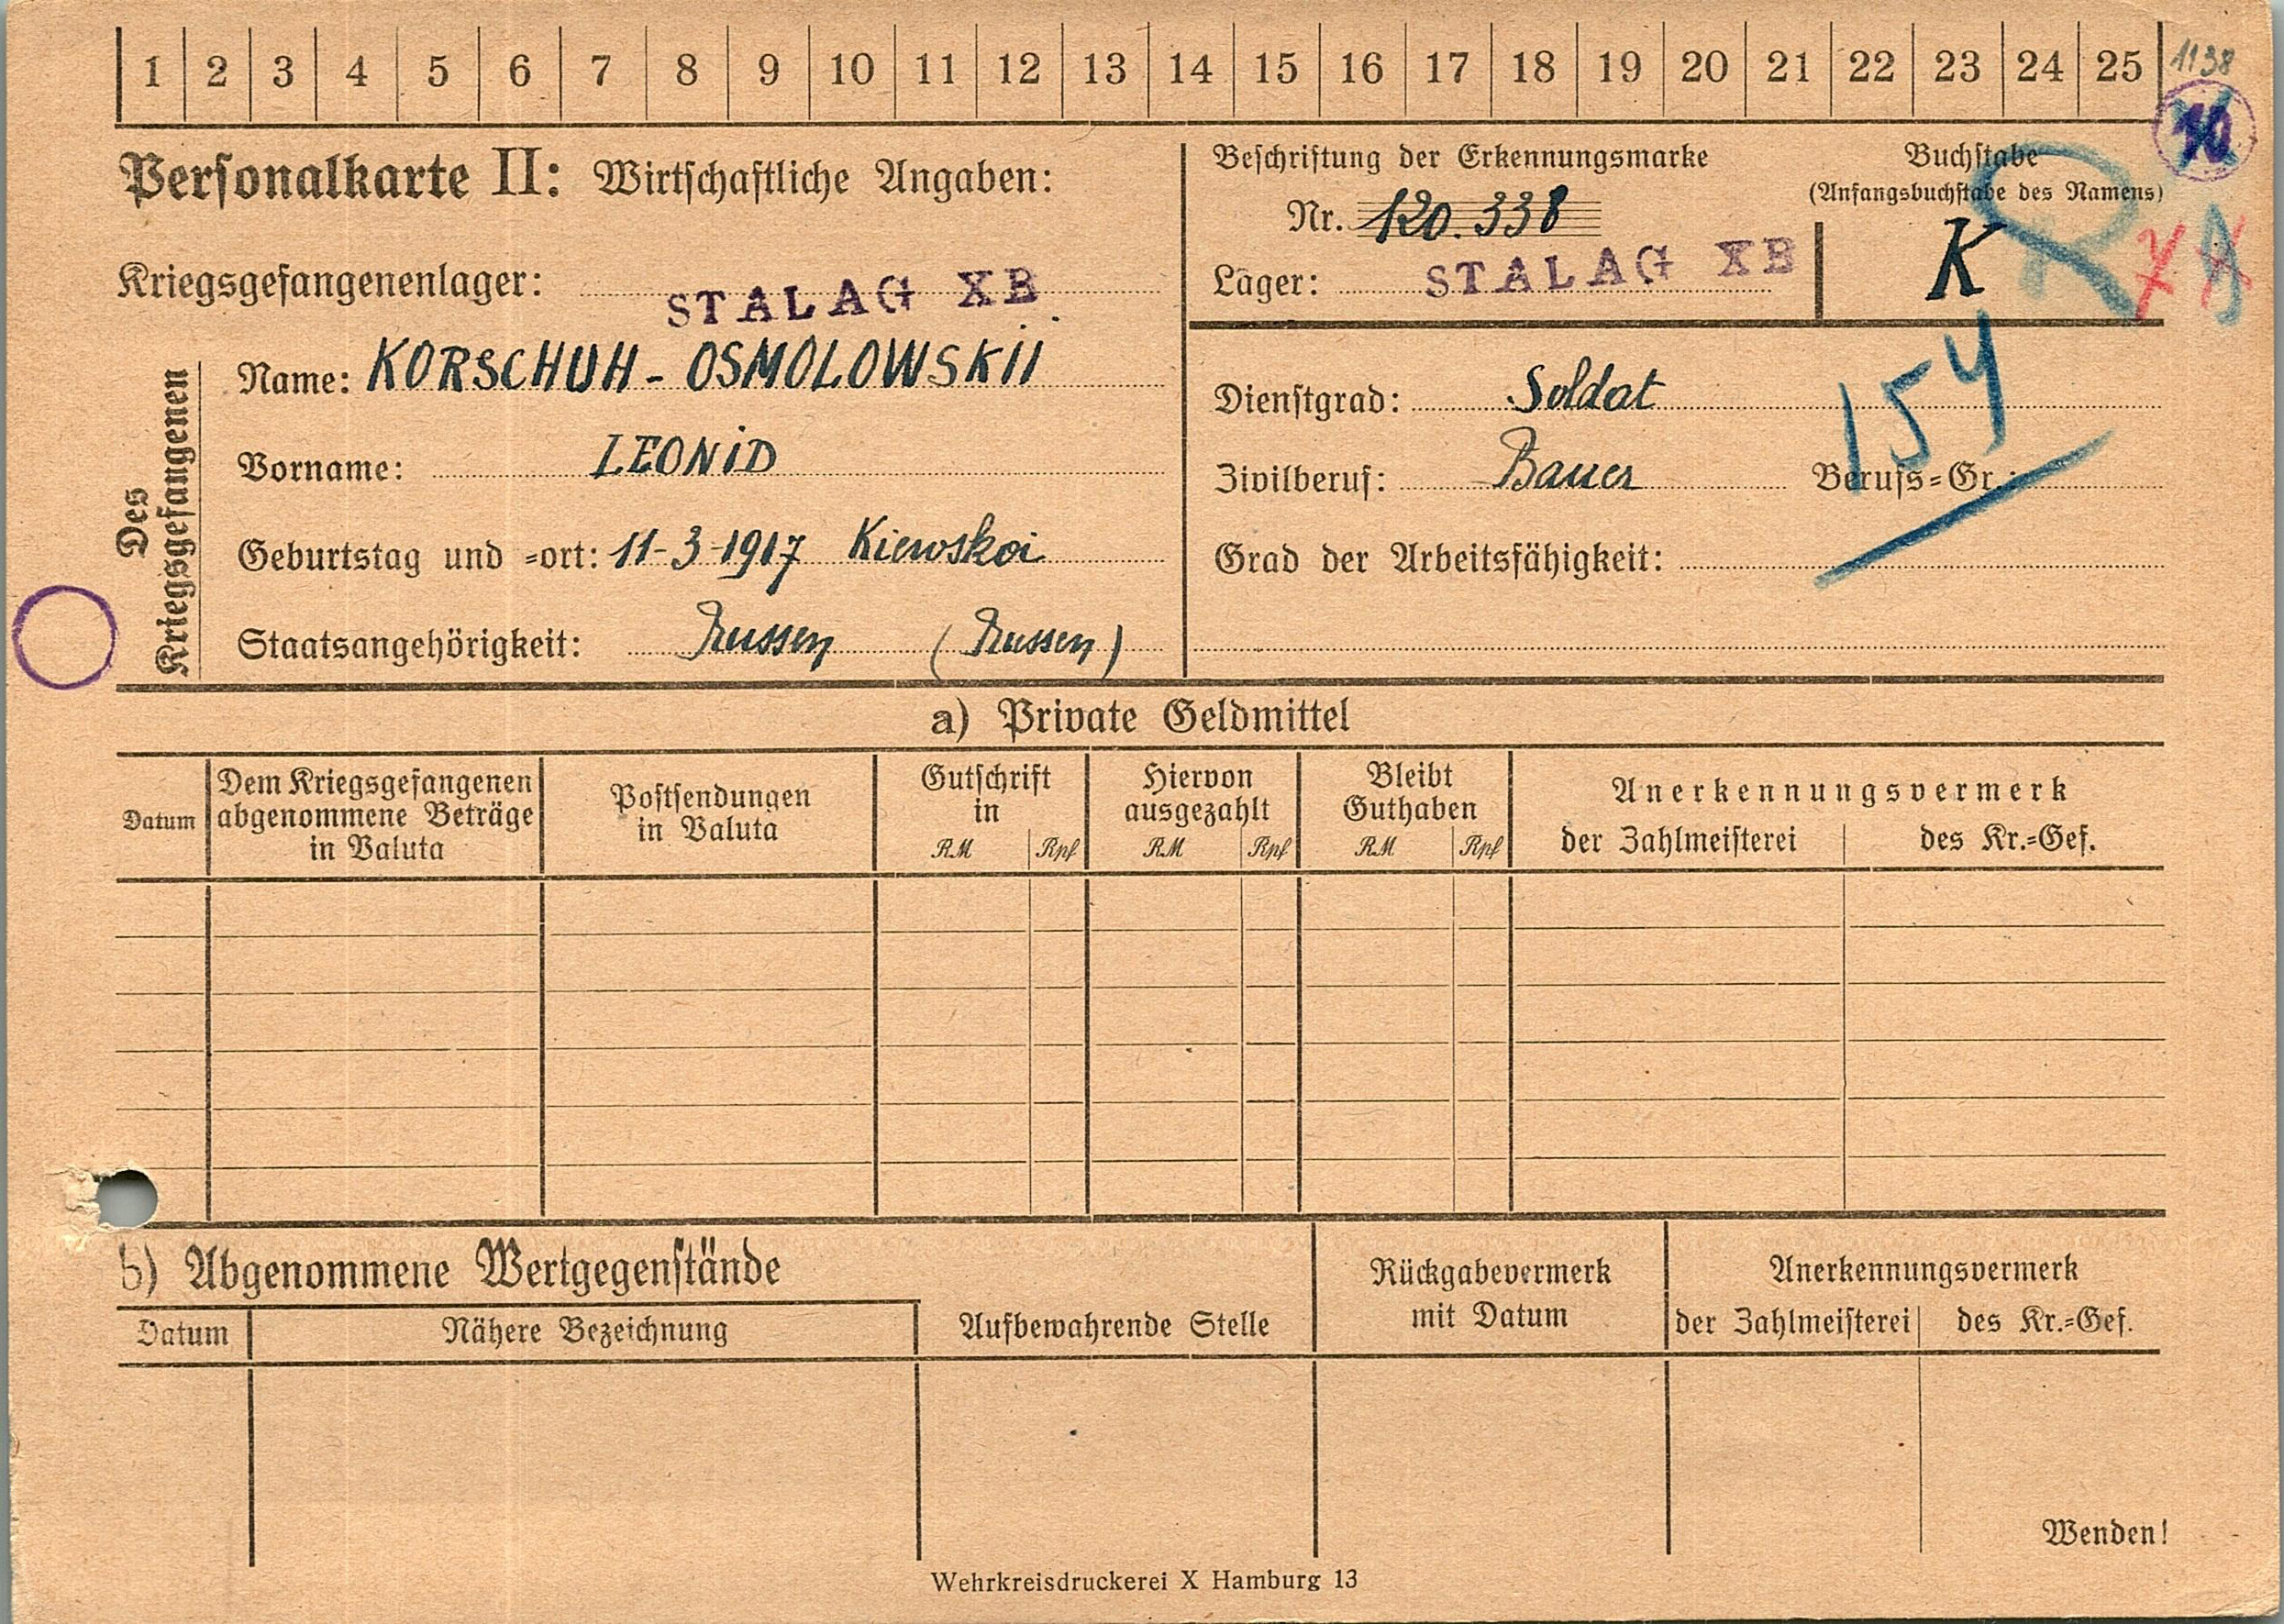 1 2 3 4 5 6 7 8 9 10 11 12 13 14 15 16 17 18 19 20 21 22 23 24 25 1138
10
Personalkarte II: Wirtschaftliche Angaben:
Beschriftung der Erkennungsmarke
Nr. 120.338
Lager: STALAG XB
Buchstabe
(Anfangsbuchstabe des Namens)
K
Kriegsgefangenenlager: STALAG XB
Des Kriegsgefangenen
Name: KORSCHUH - OSMOLOWSKII
Vorname: LEONID
Geburtstag und =ort: 11-3-1917 Kiewskoi
Staatsangehörigkeit: Russen (Russen)
Dienstgrad: Soldat
154
Zivilberuf: Bauer Berufs=Gr.:
Grad der Arbeitsfähigkeit:
a) Private Geldmittel
Datum
Dem Kriegsgefangenen
abgenommene Beträge
in Valuta
Postsendungen
in Valuta
Gutschrift
in
RM Rpf
Hiervon
ausgezahlt
RM Rpf
Bleibt
Guthaben
RM Rpf
Anerkennungsvermerk
der Zahlmeisterei des Kr.=Gef.
b) Abgenommene Wertgegenstände
Datum Nähere Bezeichnung
Aufbewahrende Stelle
Rückgabevermerk
mit Datum
Anerkennungsvermerk
der Zahlmeisterei des Kr.=Gef.
Wenden!
Wehrkreisdruckerei X Hamburg 13